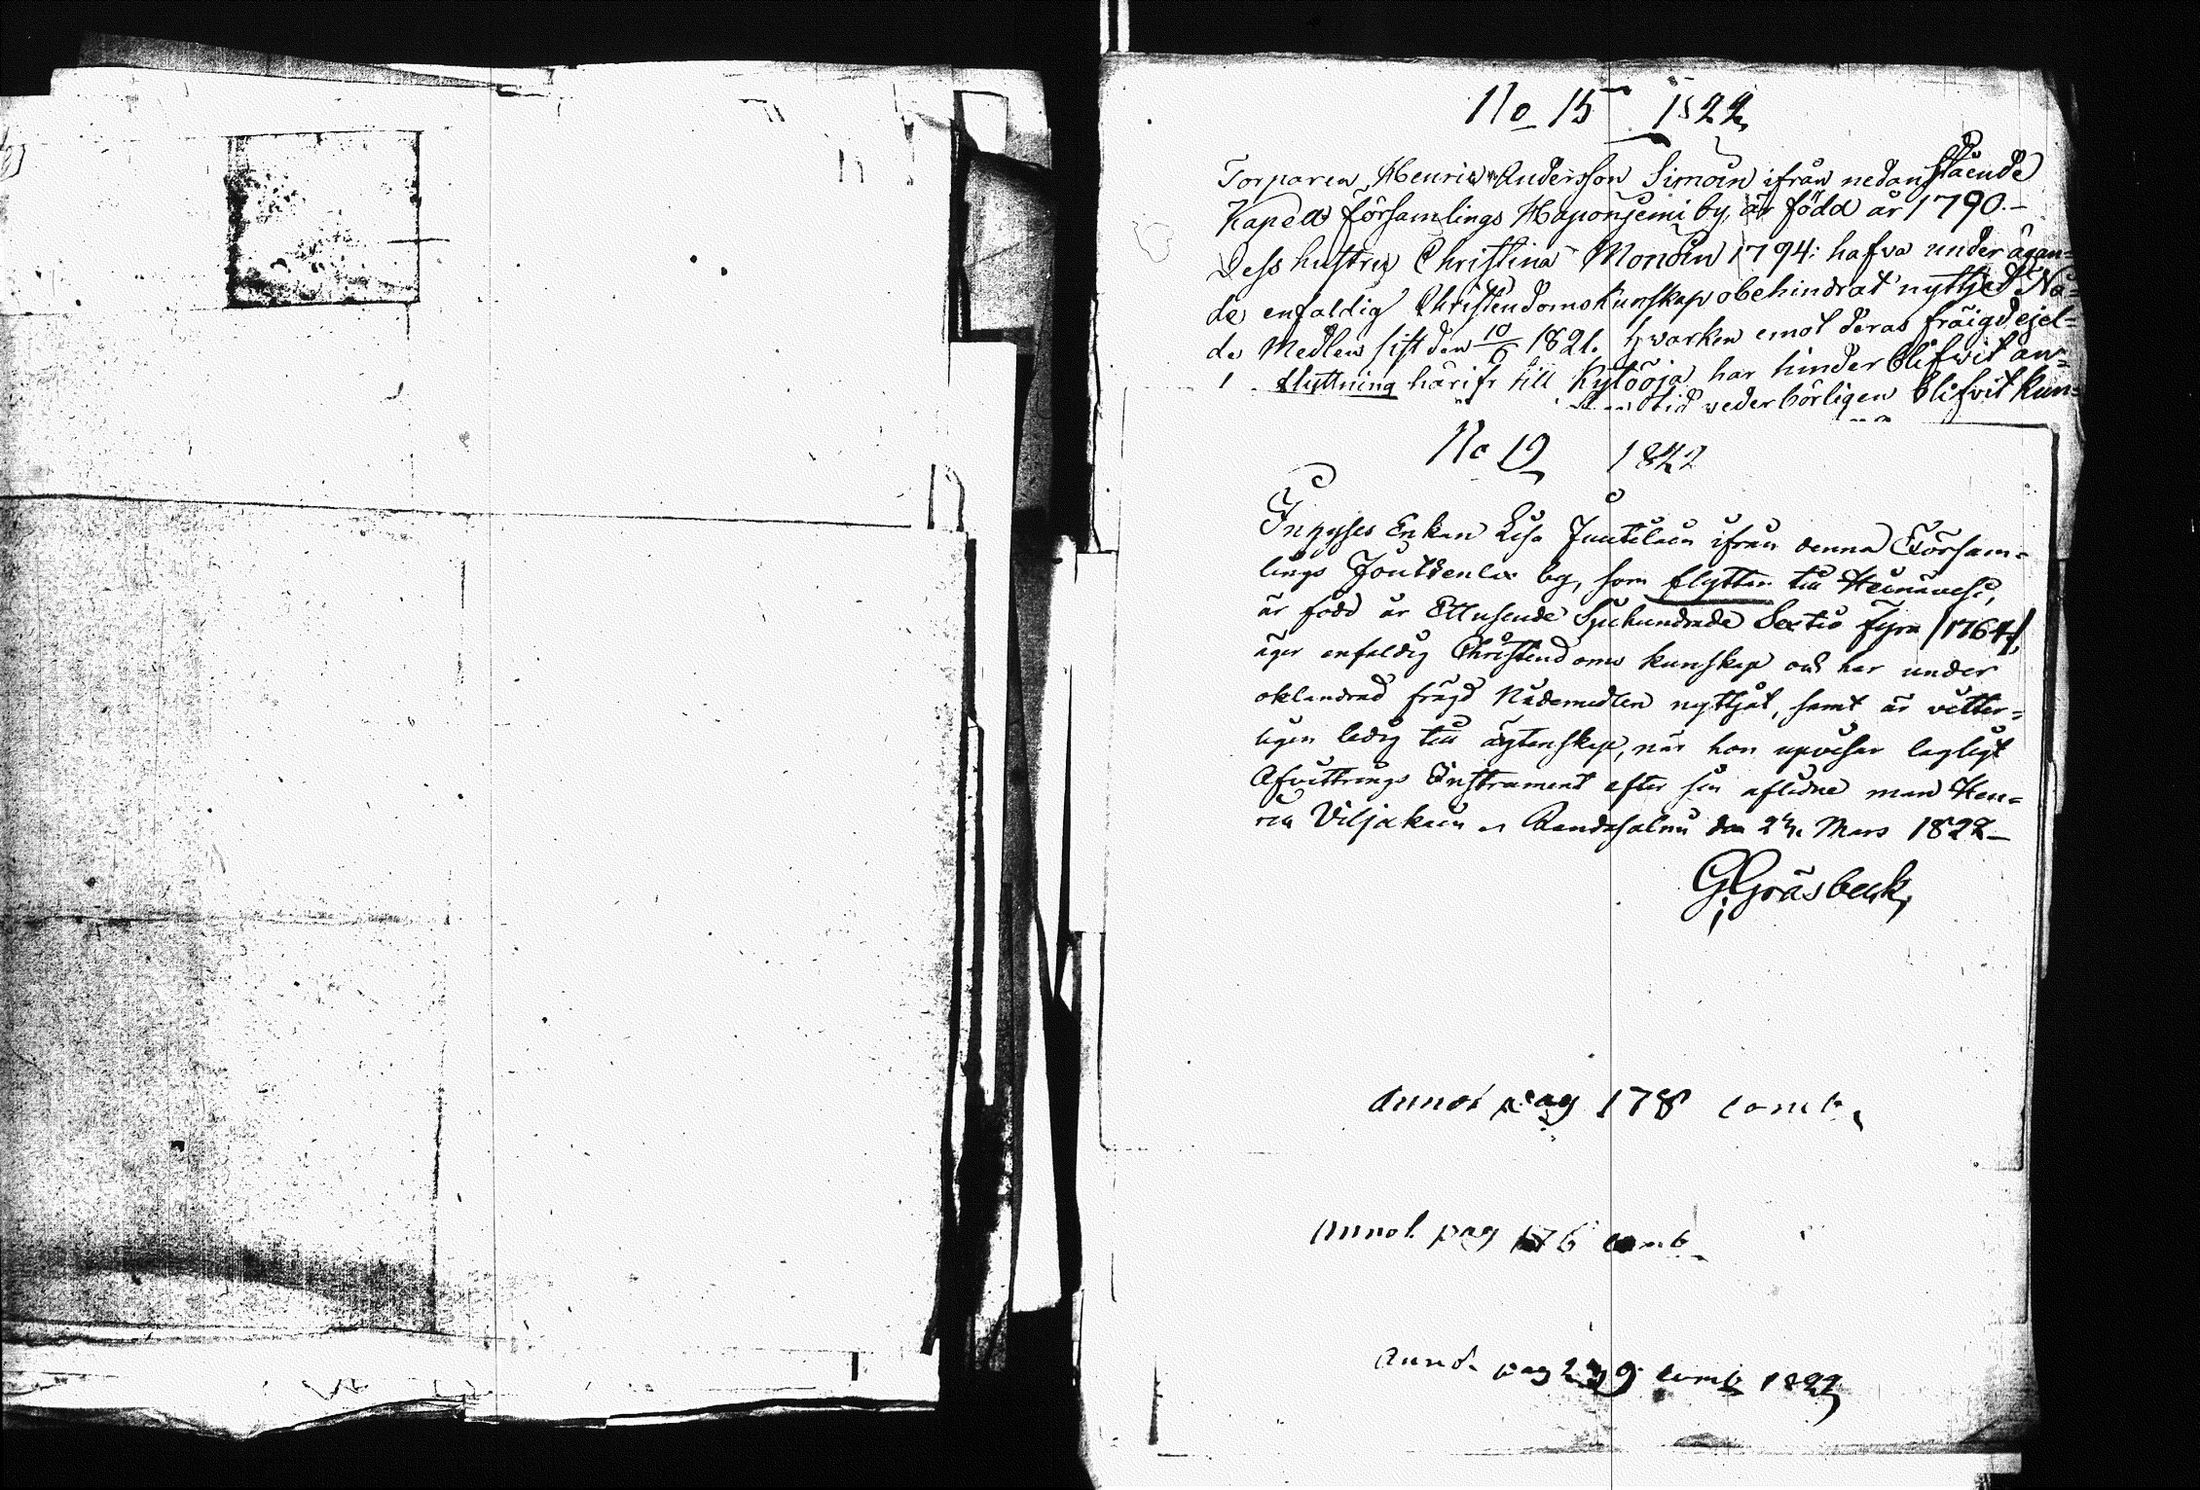 No 15 1822
Torparen Henric Andersson Simoin ifrån nedanstående
Kapells församlings Haponjemi by, är född år 1790.-
Dess hustru Christina Monoin 1794: hafva under ägan=
de enfaldig Christendomskunskap obehindrat nyttjat Nå=
de Medlen sist den 10/6 1821. Hvarken emot deras fräigd ejel=
flyttning härifr till har hinder blifvit an=
vederbörligen blifvit kun=
No 12 1822
Inhyses Enkan Lisa Juutilain ifrån denna Försam=
lings Joutsenlax by, som flyttar till Heinävesi,
är född år Ettusende Sjuhundrade Sextio fyra /1764/,
äger enfaldig Christendoms kunskap och har under
oklandrad frägd Nådemedlen nyttjat, samt är vitter=
ligen ledig till ägtenskap, när hon upviser lagligt
Afvittrings Instrument efter sin aflidne man Hen=
ric Viljakain Randasalmi den 24. Mars 1822-
G. Gräsbeck,
Annot pag 178 comb.
Annot. pag 176 comb
Annot. pag comb 1822